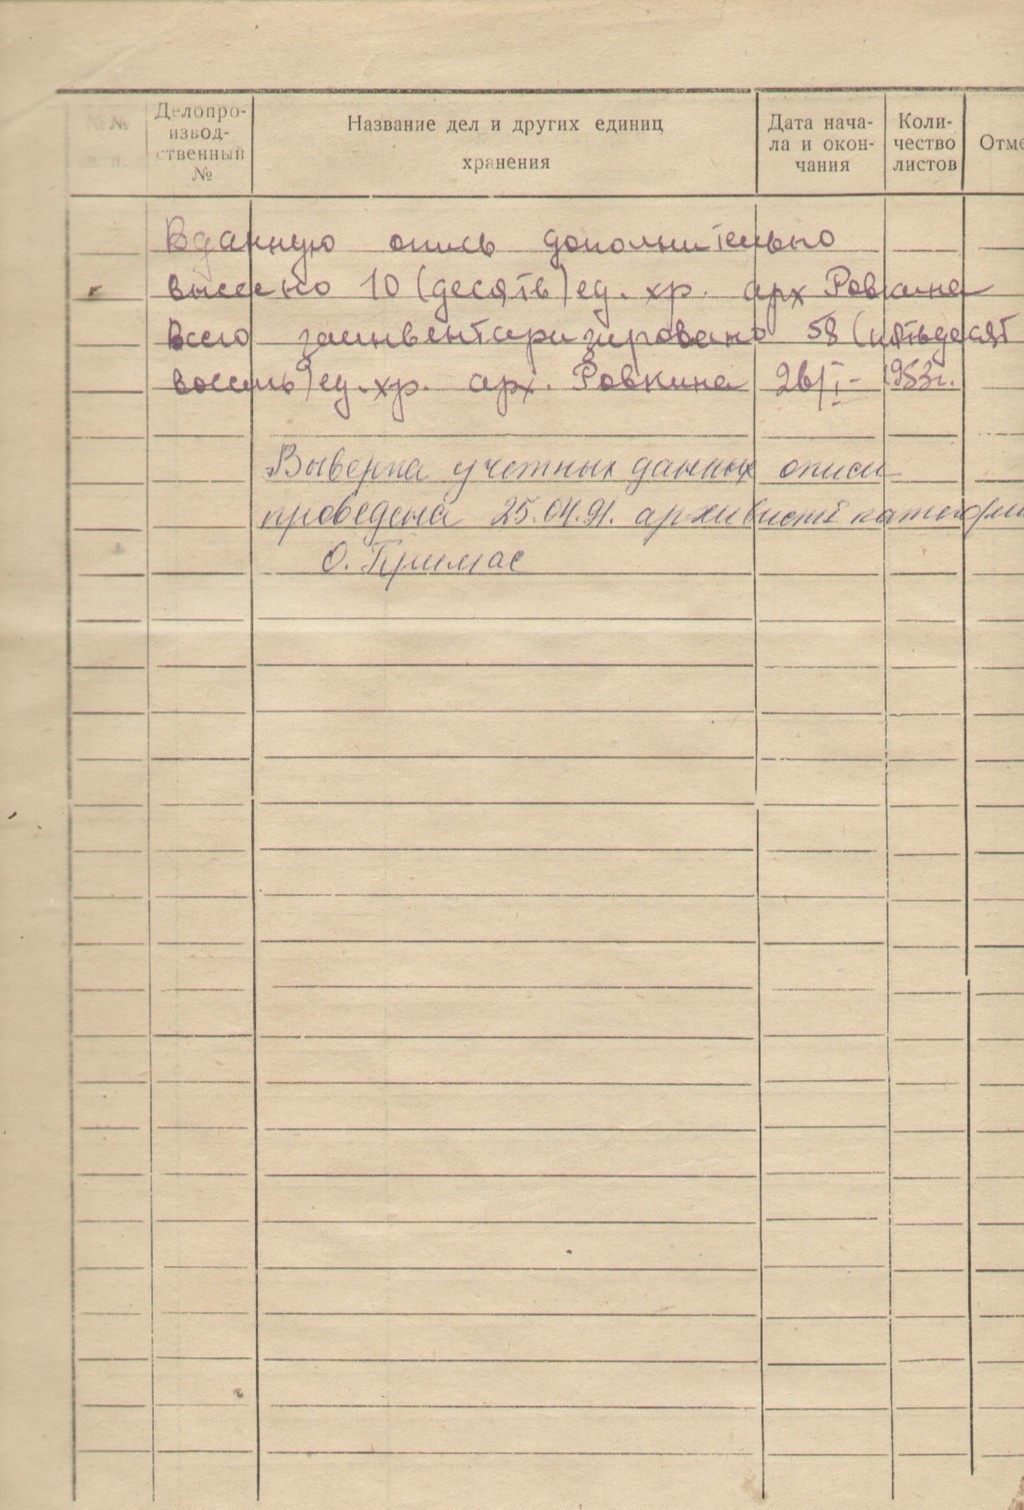 №№
Делопро-
извод-
ственный
№
Название дел и других единиц
хранения
Дата нача-
ла и окон-
чания
Коли-
чество
листов
Отме
В данную опись дополнительно
внесено 10 (десять) ед. хр. арх Ровкина
Всего заинвентаризировано 58 (пятьдесят
восемь) ед. хр. арх. Ровкина 26/I- 1953г.
Выверка учетных данных описи
проведена 25.04.91. архивист категории
О. Примас